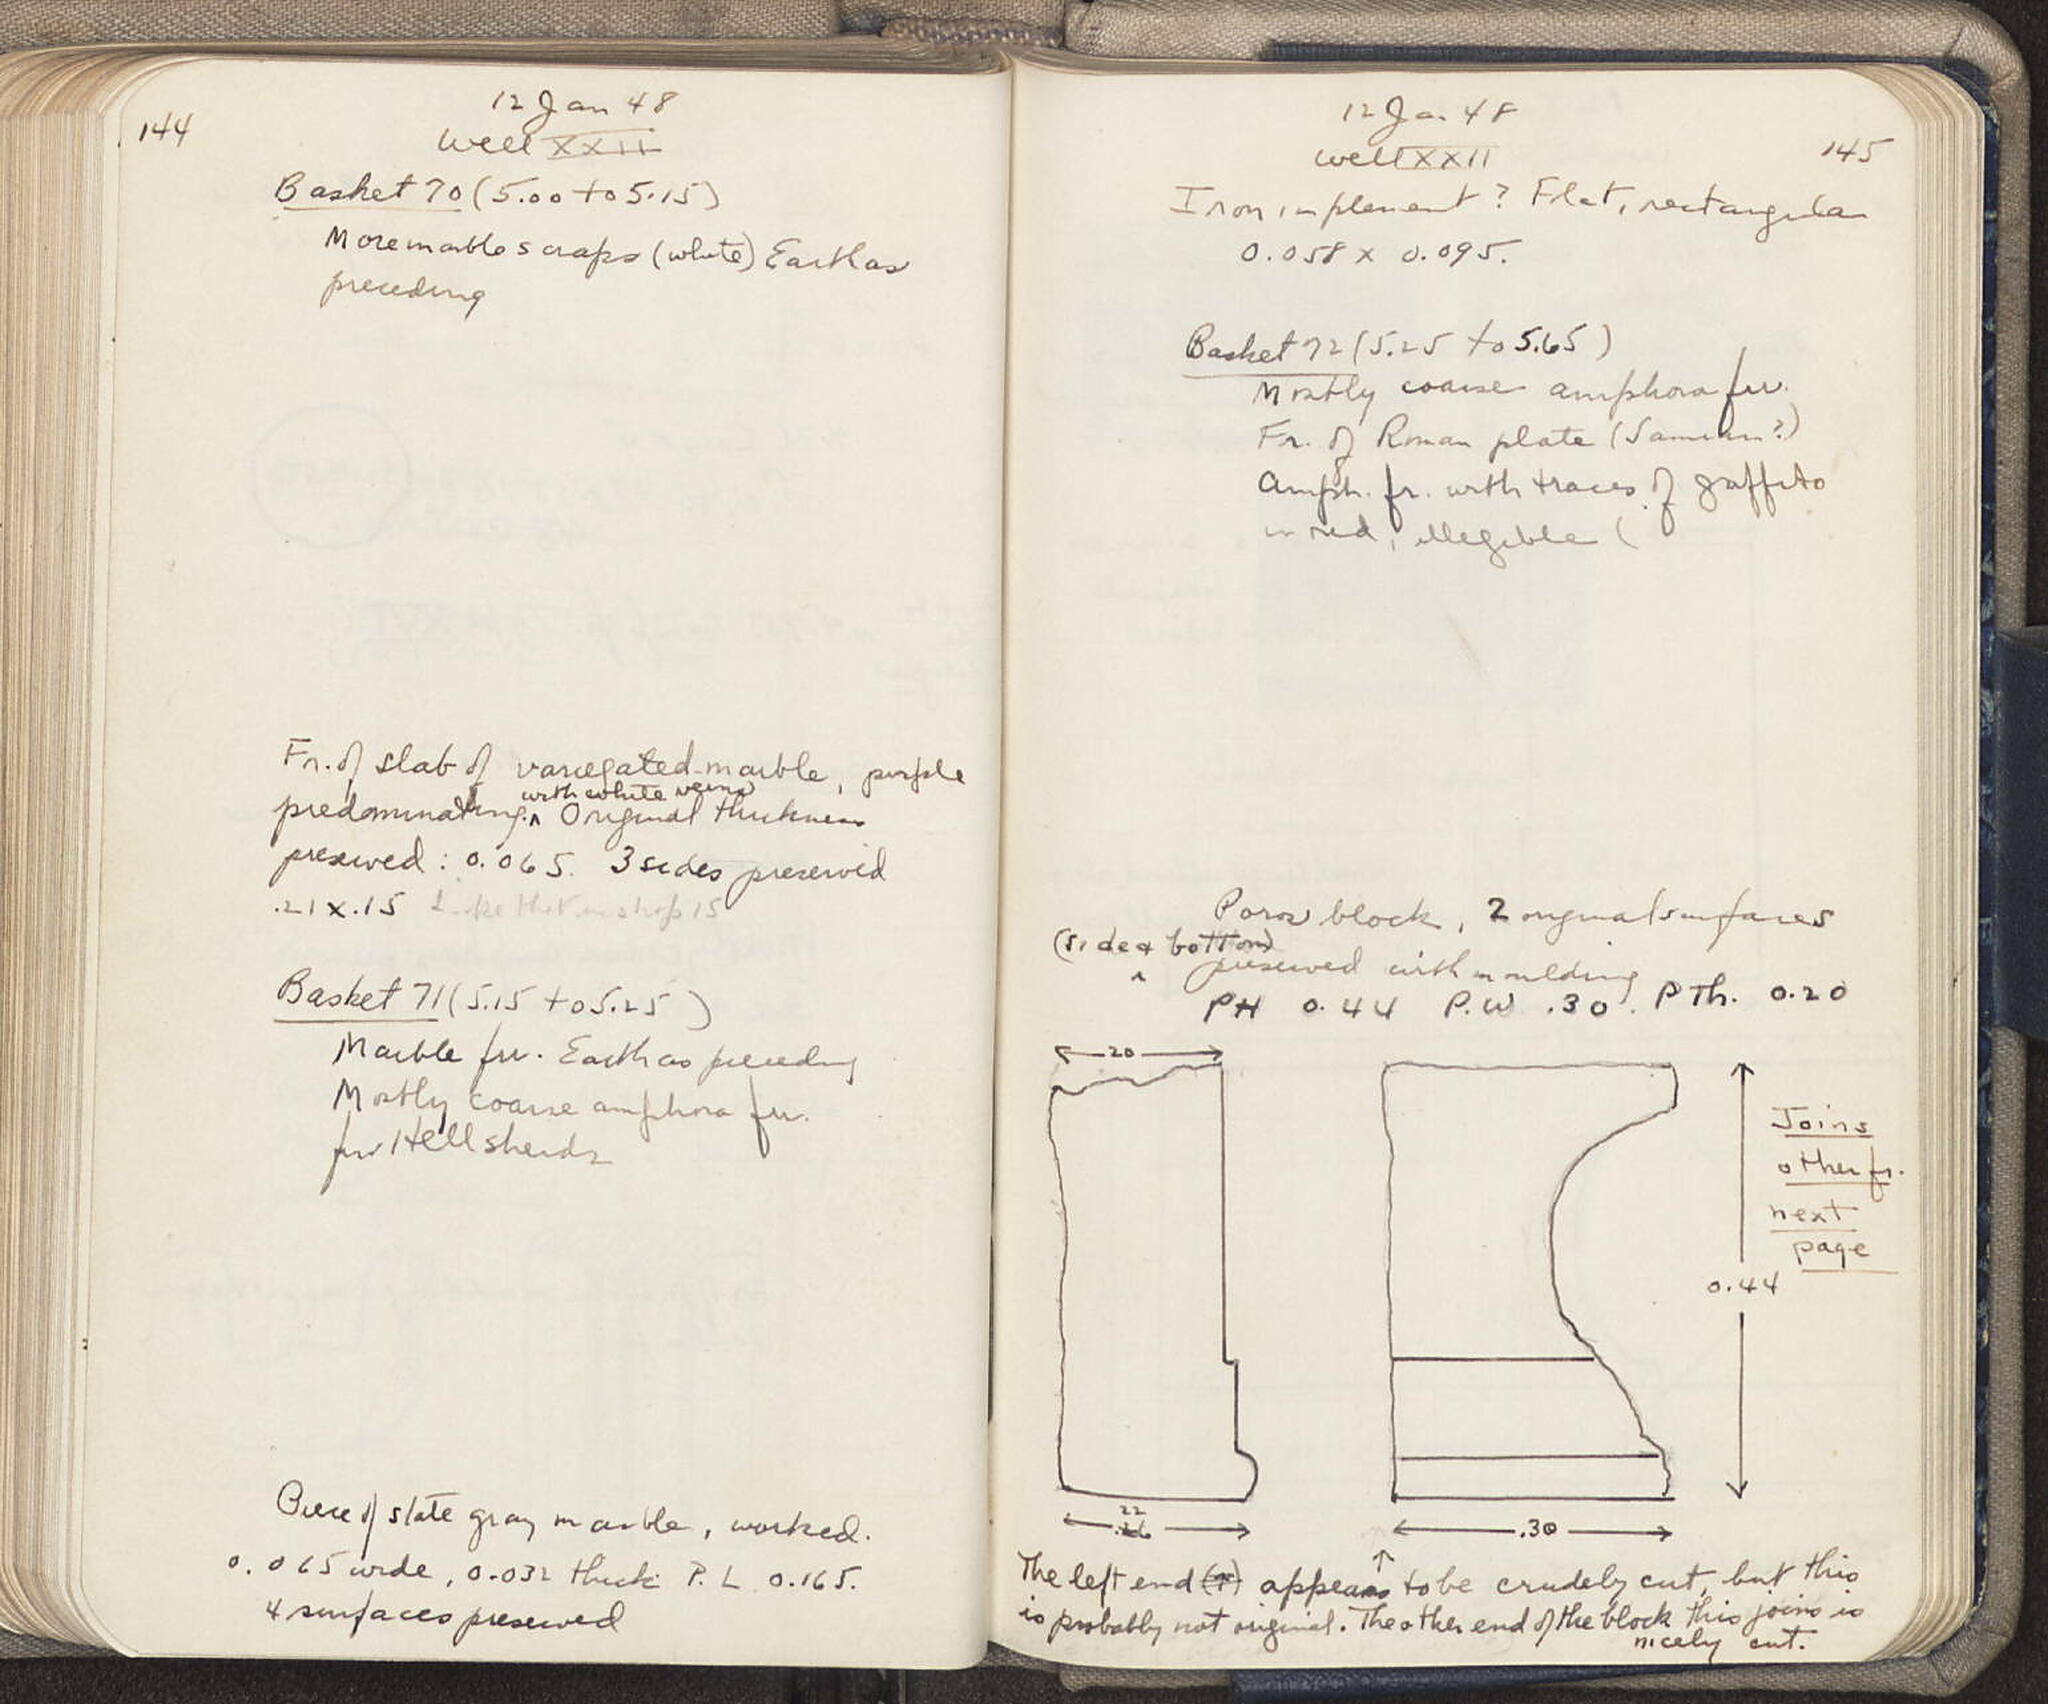 144
12 Jan 48
Well XXII
Basket 70 (5.00 to 5.15)
More marble scraps (white) Earth as
preceding
Fr. of slab of variegated marble, purple
with white veins
predominating. ^ Original thickness
preserved : 0.065. 3 sides preserved
.21 x .15 Like that in shop 15
Basket 71 (5.15 to 5.25)
Marble frr. Earth as preceding
Mostly coarse amphora frr.
few Hell sherds
Piece of slate gray marble, worked.
0.065 wide, 0.032 thick P. L 0.165.
4 surfaces preserved
12 Jan 48
Well XXII
145
Iron implement ? Flat, rectangular
0.058 x 0.095.
Basket 72 (5.25 to 5.65)
Mostly coarse amphora frr.
Fr. of Roman plate (Samian?)
Amph. fr. with traces of graffito
in red, illegible (
Poros block, 2 original surfaces
(side & bottom)
^ preserved with moulding
PH 0.44 P.W .30. P Th. 0.20
20
Joins
other fr.
next
page
0.44
22
.26
.30
The left end (↑) appears to be crudely cut, but this
is probably not original. The other end of the block this joins is
nicely cut.